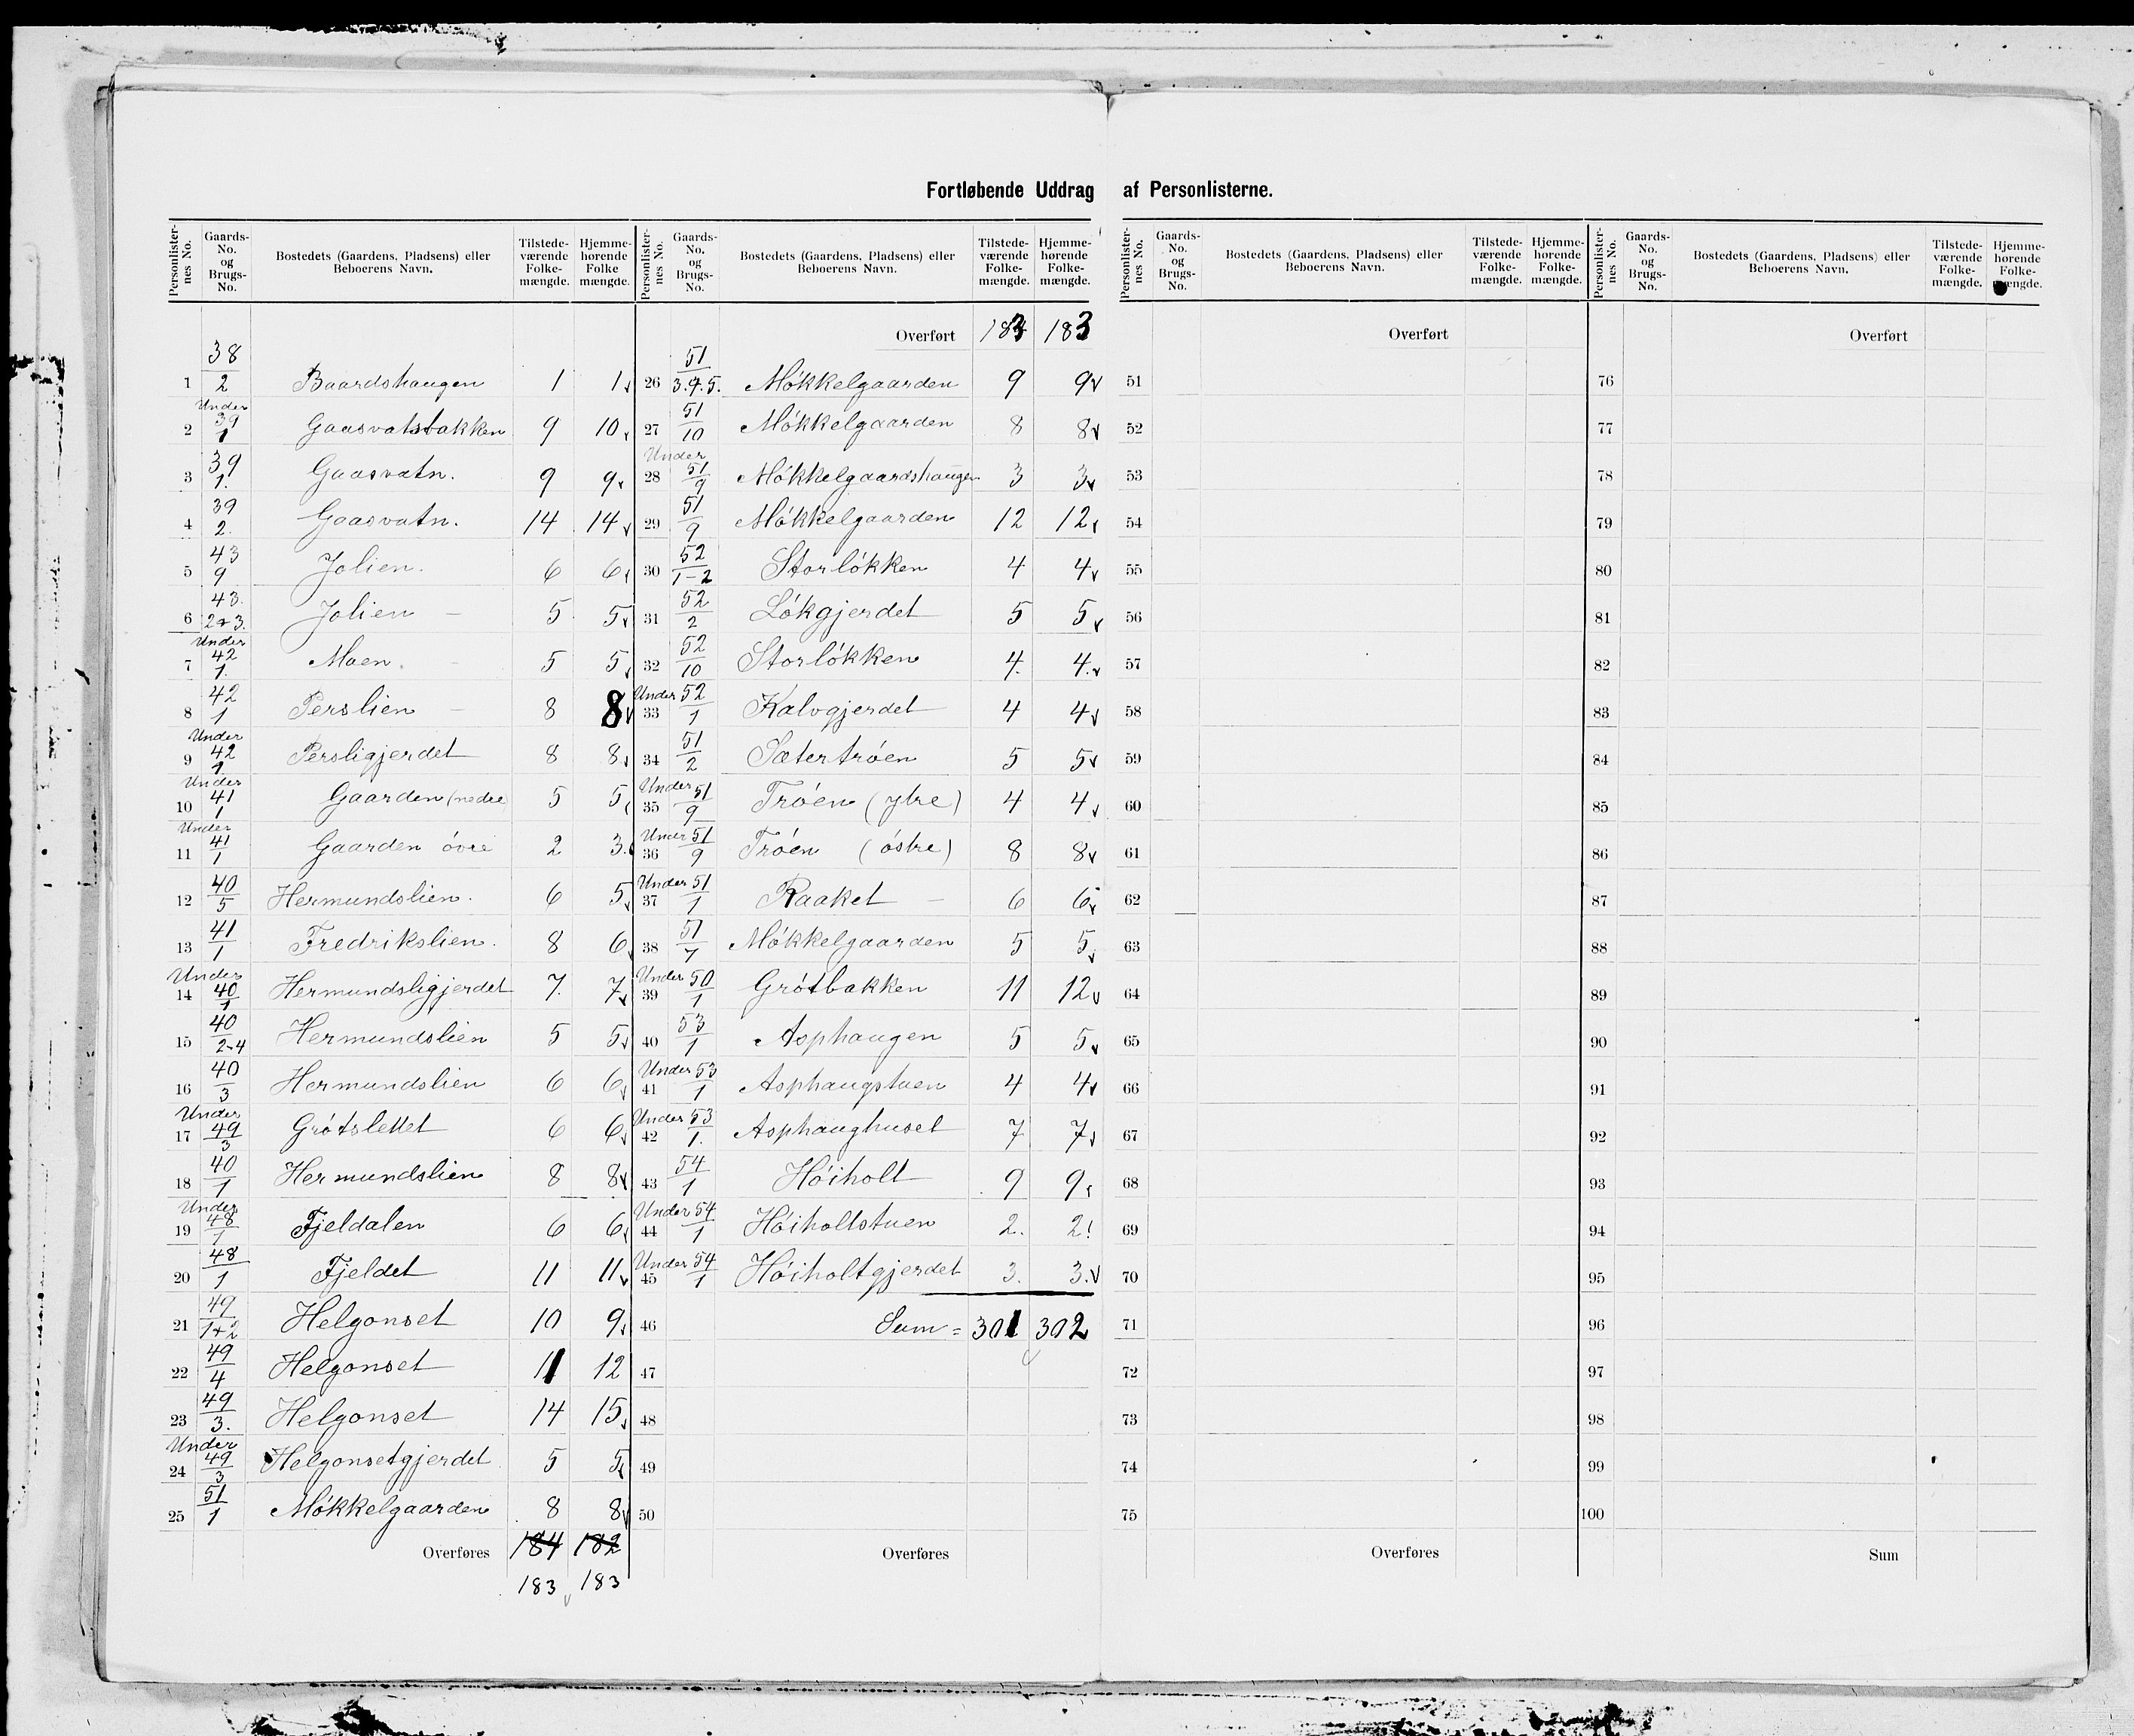 Fortløbende Uddrag af Personlisterne.
Personlisternes No. | Gaards-No. og Brugs-No. | Bostedets (Gaardens, Pladsens) eller Beboerens Navn. | Tilstedeværende Folkemængde. | Hjemmehørende Folkemængde.
1 | 38/2 | Baardshaugen | 1 | 1
2 | Under 39/1 | Gaasvatsbakken | 9 | 10
3 | 39/1. | Gaasvatn. | 9 | 9
4 | 39/2. | Gaasvatn. | 14 | 14
5 | 43/9 | Jolien. | 6 | 6
6 | 43./2+3. | Jolien – | 5 | 5
7 | Under 42/1. | Moen. | 5 | 5
8 | 42/1 | Perslien – | 8 | 8
9 | Under 42/1 | Persligjerdet | 8 | 8
10 | Under 41/1 | Gaarden (nedre) | 5 | 5
11 | Under 41/1 | Gaarden óvre | 2 | 3.
12 | 40/5 | Hermundslien. | 6 | 5
13 | 41/1 | Fredrikslien. | 8 | 6
14 | Under 40/1 | Hermundsligjerdet | 7. | 7
15 | 40/2-4 | Hermundslien | 5 | 5
16 | 40/3 | Hermundslien | 6 | 6
17 | Under 49/3 | Grótslettet | 6 | 6
18 | 40/1 | Hermundslien | 8 | 8
19 | Under 48/1 | Fjeldalen | 6 | 6
20 | 48/1 | Fjeldet | 11 | 11
21 | 49/1+2 | Helgonset | 10 | 9
22 | 49/4 | Helgonset | 11 | 12
23 | 49/3. | Helgonset | 14 | 15
24 | Under 49/3 | Helgonsetgjerdet | 5 | 5
25 | 51/1 | Mókkelgaarden | 8 | 8
Overføres 184 182
183 183
Personlisternes No. | Gaards-No. og Brugs-No. | Bostedets (Gaardens, Pladsens) eller Beboerens Navn. | Tilstedeværende Folkemængde. | Hjemmehørende Folkemængde.
Overført 183 183
26 | 51/3.4.5. | Mókkelgaarden | 9 | 9
27 | 51/10 | Mókkelgaarden | 8 | 8
28 | Under 51/9 | Mókkelgaardshaugen | 3 | 3
29 | 51/9 | Mókkelgaarden | 12 | 12
30 | 52/1-2 | Storlókken | 4 | 4
31 | 52/2 | Lókgjerdet | 5 | 5
32 | 52/10 | Storlókken | 4. | 4.
33 | Under 52/1 | Kalvgjerdet | 4 | 4
34 | 51/2 | Sætertróen | 5 | 5
35 | Under 51/9 | Tróen (ytre) | 4 | 4
36 | Under 51/9 | Tróen (óstre) | 8 | 8
37 | Under 51/1 | Raaket – | 6 | 6
38 | 51/7 | Mókkelgaarden | 5 | 5
39 | Under 50/1 | Grótbakken | 11 | 12
40 | 53/1 | Asphaugen | 5 | 5
41 | Under 53/1 | Asphaugstuen | 4 | 4
42 | Under 53/1. | Asphaughuset | 7 | 7
43 | 54/1 | Hóiholt | 9 | 9
44 | Under 54/1 | Hóiholtstuen | 2. | 2
45 | Under 54/1 | Hóiholtgjerdet | 3. | 3.
46 | Sum = | 301 | 302
47
48
49
50
Overføres
Personlisternes No. | Gaards-No. og Brugs-No. | Bostedets (Gaardens, Pladsens) eller Beboerens Navn. | Tilstedeværende Folkemængde. | Hjemmehørende Folkemængde.
Overført
51
52
53
54
55
56
57
58
59
60
61
62
63
64
65
66
67
68
69
70
71
72
73
74
75
Overføres
Personlisternes No. | Gaards-No. og Brugs-No. | Bostedets (Gaardens, Pladsens) eller Beboerens Navn. | Tilstedeværende Folkemængde. | Hjemmehørende Folkemængde.
Overført
76
77
78
79
80
81
82
83
84
85
86
87
88
89
90
91
92
93
94
95
96
97
98
99
100
Sum